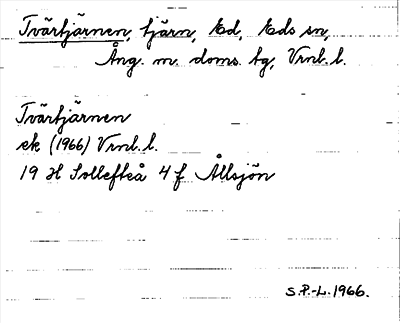 Tvärtjärnen, tjärn, Ed, Eds sn,
Ång. m. doms. tg, Vrnl. l.
Tvärtjärnen
ek (1966) Vrnl. l.
19 H Sollefteå 4 f Ållsjön
S.P.-L. 1966.